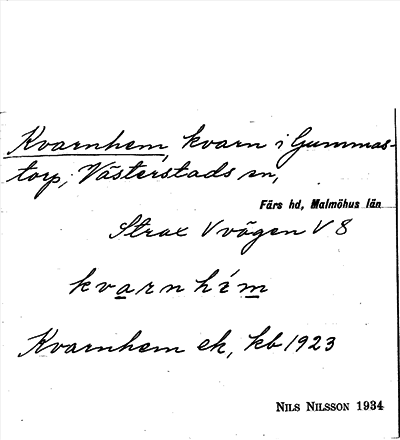 Kvarnhem, kvarn i Gummas-
torp, Västerstads sn,
Färs hd, Malmöhus län
Strax V vägen V 8
kvarnhím
Kvarnhem ek, kb 1923
NILS NILSSON 1934